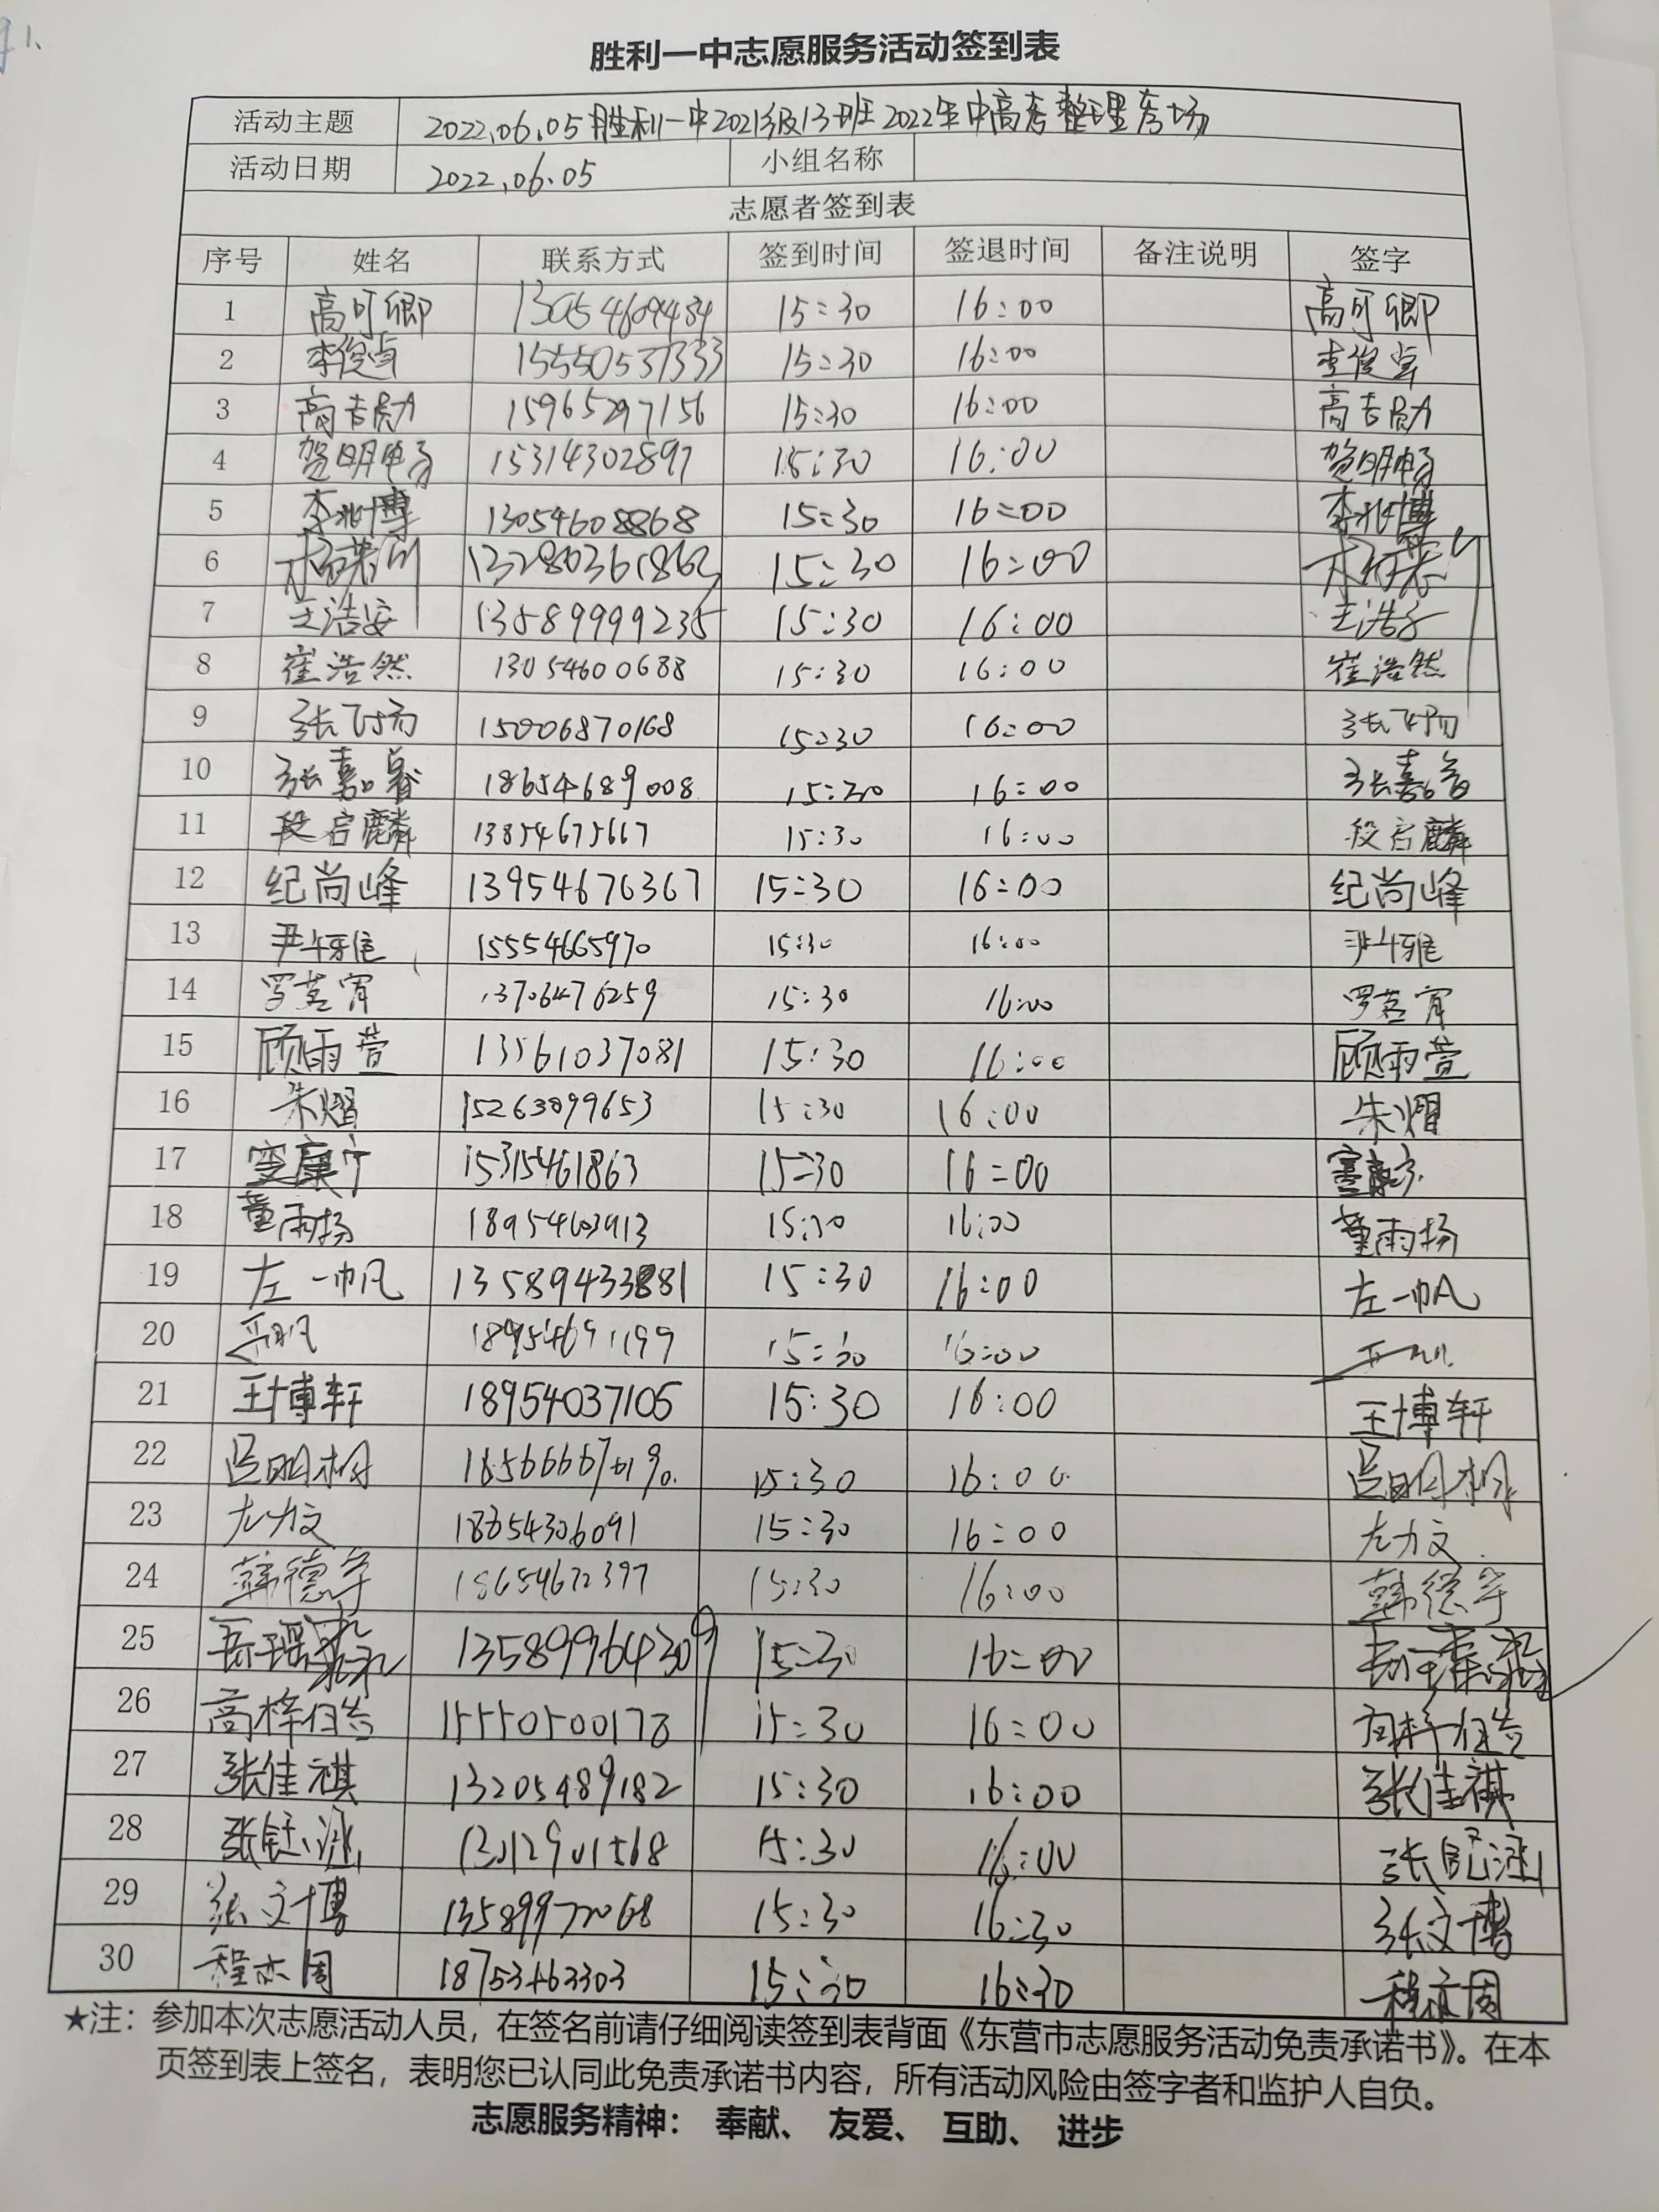 胜利一中志愿服务活动签到表
活动主题 2022.06.05胜利一中2021级13班2022年中高考整理考场
活动日期 2022.06.05 小组名称
志愿者签到表
序号 姓名 联系方式 签到时间 签退时间 备注说明 签字
1 高可卿 13054609484 15:30 16:00 高可卿
2 15550537333 15:30 16:00
3 15965297156 15:30 16:00
4 贺明畅 15314302897 15:30 16:00 贺明畅
5 李兆博 13054608868 15:30 16:00 李兆博
6 15:30 16:00
7 王浩安 13589999235 15:30 16:00 王浩安
8 崔浩然 13054600688 15:30 16:00 崔浩然
9 15006870168 15:30 16:00
10 18654689008 15:30 16:00
11 段启麟 13854675667 15:30 16:00 段启麟
12 纪尚峰 13954676367 15:30 16:00 纪尚峰
13 15554665970 15:30 16:00
14 13706476259 15:30 16:00
15 顾雨萱 13561037081 15:30 16:00 顾雨萱
16 朱熠 15263099653 15:30 16:00 朱熠
17 15315461863 15:30 16:00
18 董雨扬 18954603913 15:30 16:00 董雨扬
19 左一帆 13589433881 15:30 16:00 左一帆
20 18954691199 15:30 16:00
21 王博轩 18954037105 15:30 16:00 王博轩
22 15:30 16:00
23 18654306091 15:30 16:00
24 韩德宇 18654672397 15:30 16:00 韩德宇
25 13589964309 15:30 16:00
26 15550500178 15:30 16:00
27 张佳祺 13205489182 15:30 16:00 张佳祺
28 15:30 16:00
29 张文博 13589972068 15:30 16:30 张文博
30 程亦周 18753463303 15:30 16:30 程亦周
★注：参加本次志愿活动人员，在签名前请仔细阅读签到表背面《东营市志愿服务活动免责承诺书》。在本
页签到表上签名，表明您已认同此免责承诺书内容，所有活动风险由签字者和监护人自负。
志愿服务精神： 奉献、 友爱、 互助、 进步